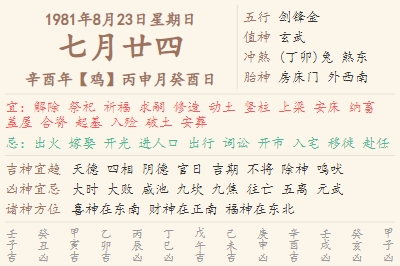 1981年8月23日星期日
七月廿四
辛酉年【鸡】丙申月癸酉日
五行 剑锋金
值神 玄武
冲煞 (丁卯)兔 煞东
胎神 房床门 外西南
宜: 解除 祭祀 祈福 求嗣 修造 动土 竖柱 上梁 安床 纳畜
盖屋 合脊 起基 入殓 破土 安葬
忌: 出火 嫁娶 开光 进人口 出行 词讼 开市 入宅 移徙 赴任
吉神宜趋 天德 四相 阴德 官日 吉期 不将 除神 鸣吠
凶神宜忌 大时 大败 咸池 九坎 九焦 往亡 五离 元武
诸神方位 喜神在东南 财神在正南 福神在东北
壬子吉
癸丑凶
甲寅吉
乙卯吉
丙辰凶
丁巳凶
戊午吉
己未吉
庚申凶
辛酉吉
壬戌凶
癸亥凶
甲子凶